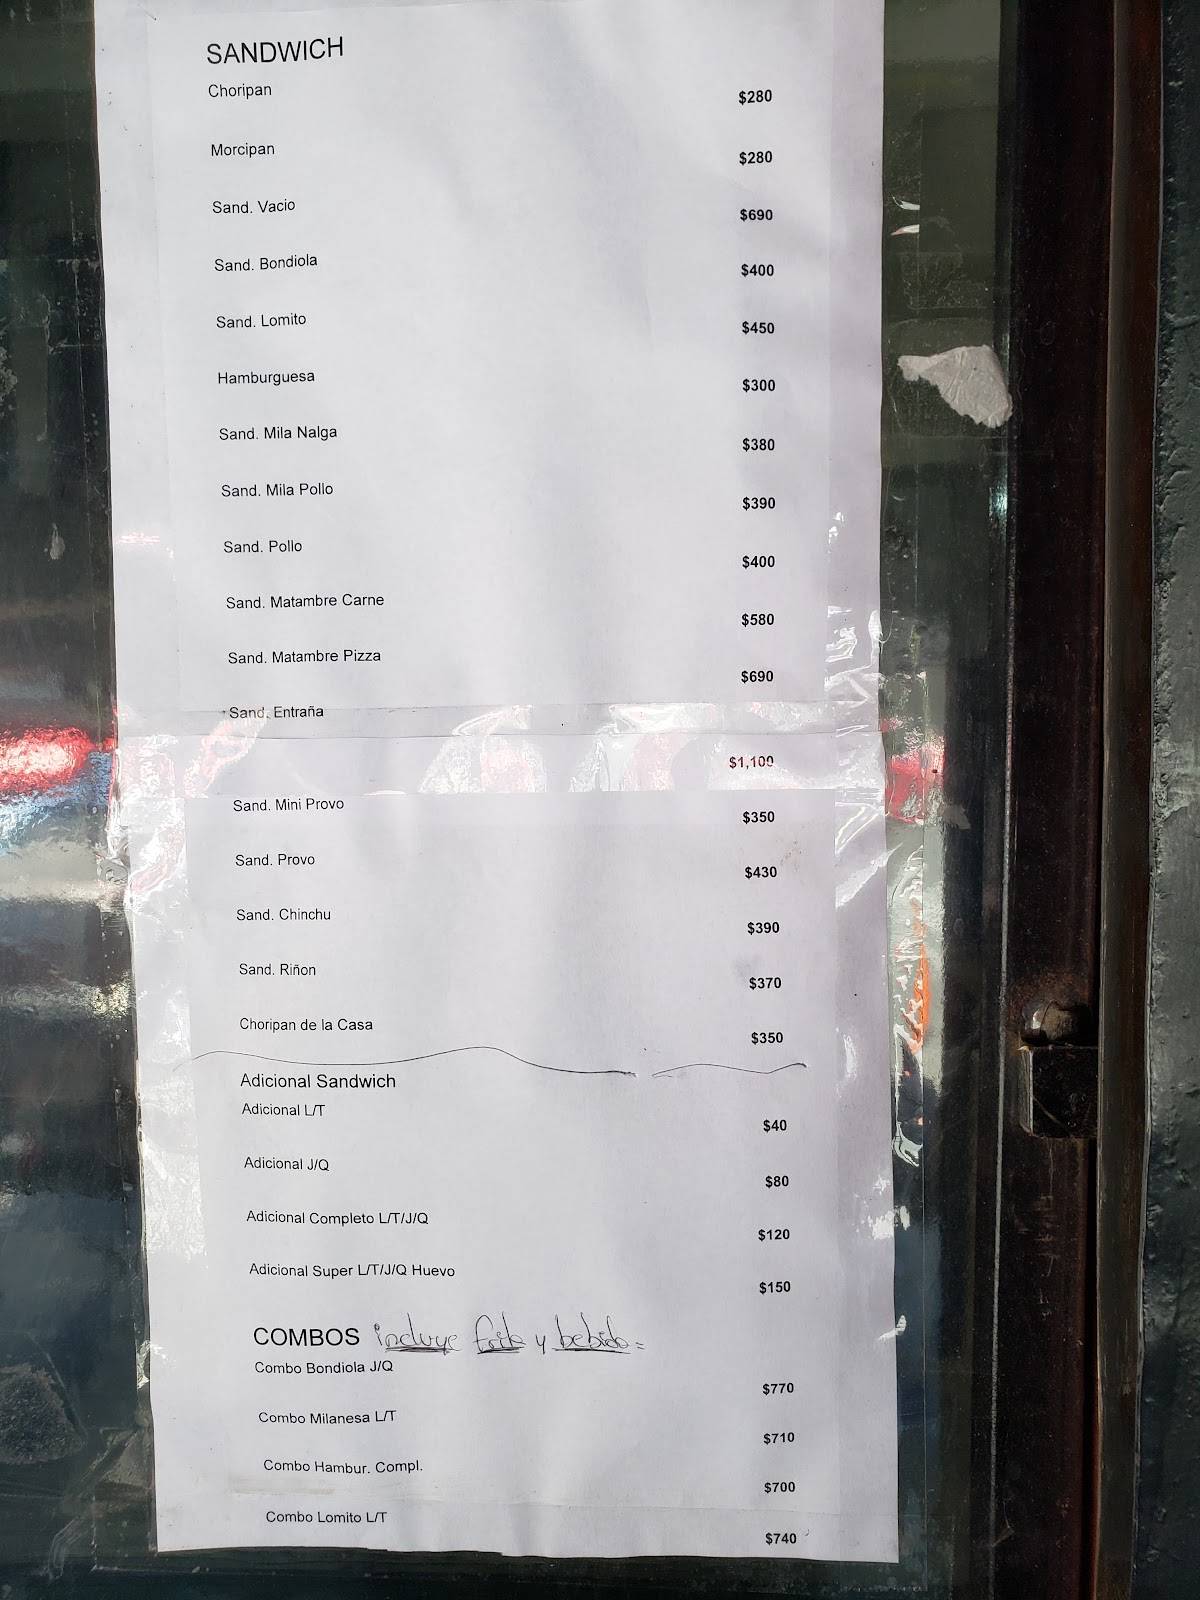 SANDWICH
Choripan $280
Morcipan $280
Sand. Vacio $690
Sand. Bondiola $400
Sand. Lomito $450
Hamburguesa $300
Sand. Mila Nalga $380
Sand. Mila Pollo $390
Sand. Pollo $400
Sand. Matambre Carne $580
Sand. Matambre Pizza $690
Sand. Entraña $1,100
Sand. Mini Provo $350
Sand. Provo $430
Sand. Chinchu $390
Sand. Riñon $370
Choripan de la Casa $350
Adicional Sandwich
Adicional L/T $40
Adicional J/Q $80
Adicional Completo L/T/J/Q $120
Adicional Super L/T/J/Q Huevo $150
COMBOS incluye frita y bebida =
Combo Bondiola J/Q $770
Combo Milanesa L/T $710
Combo Hambur. Compl. $700
Combo Lomito L/T $740